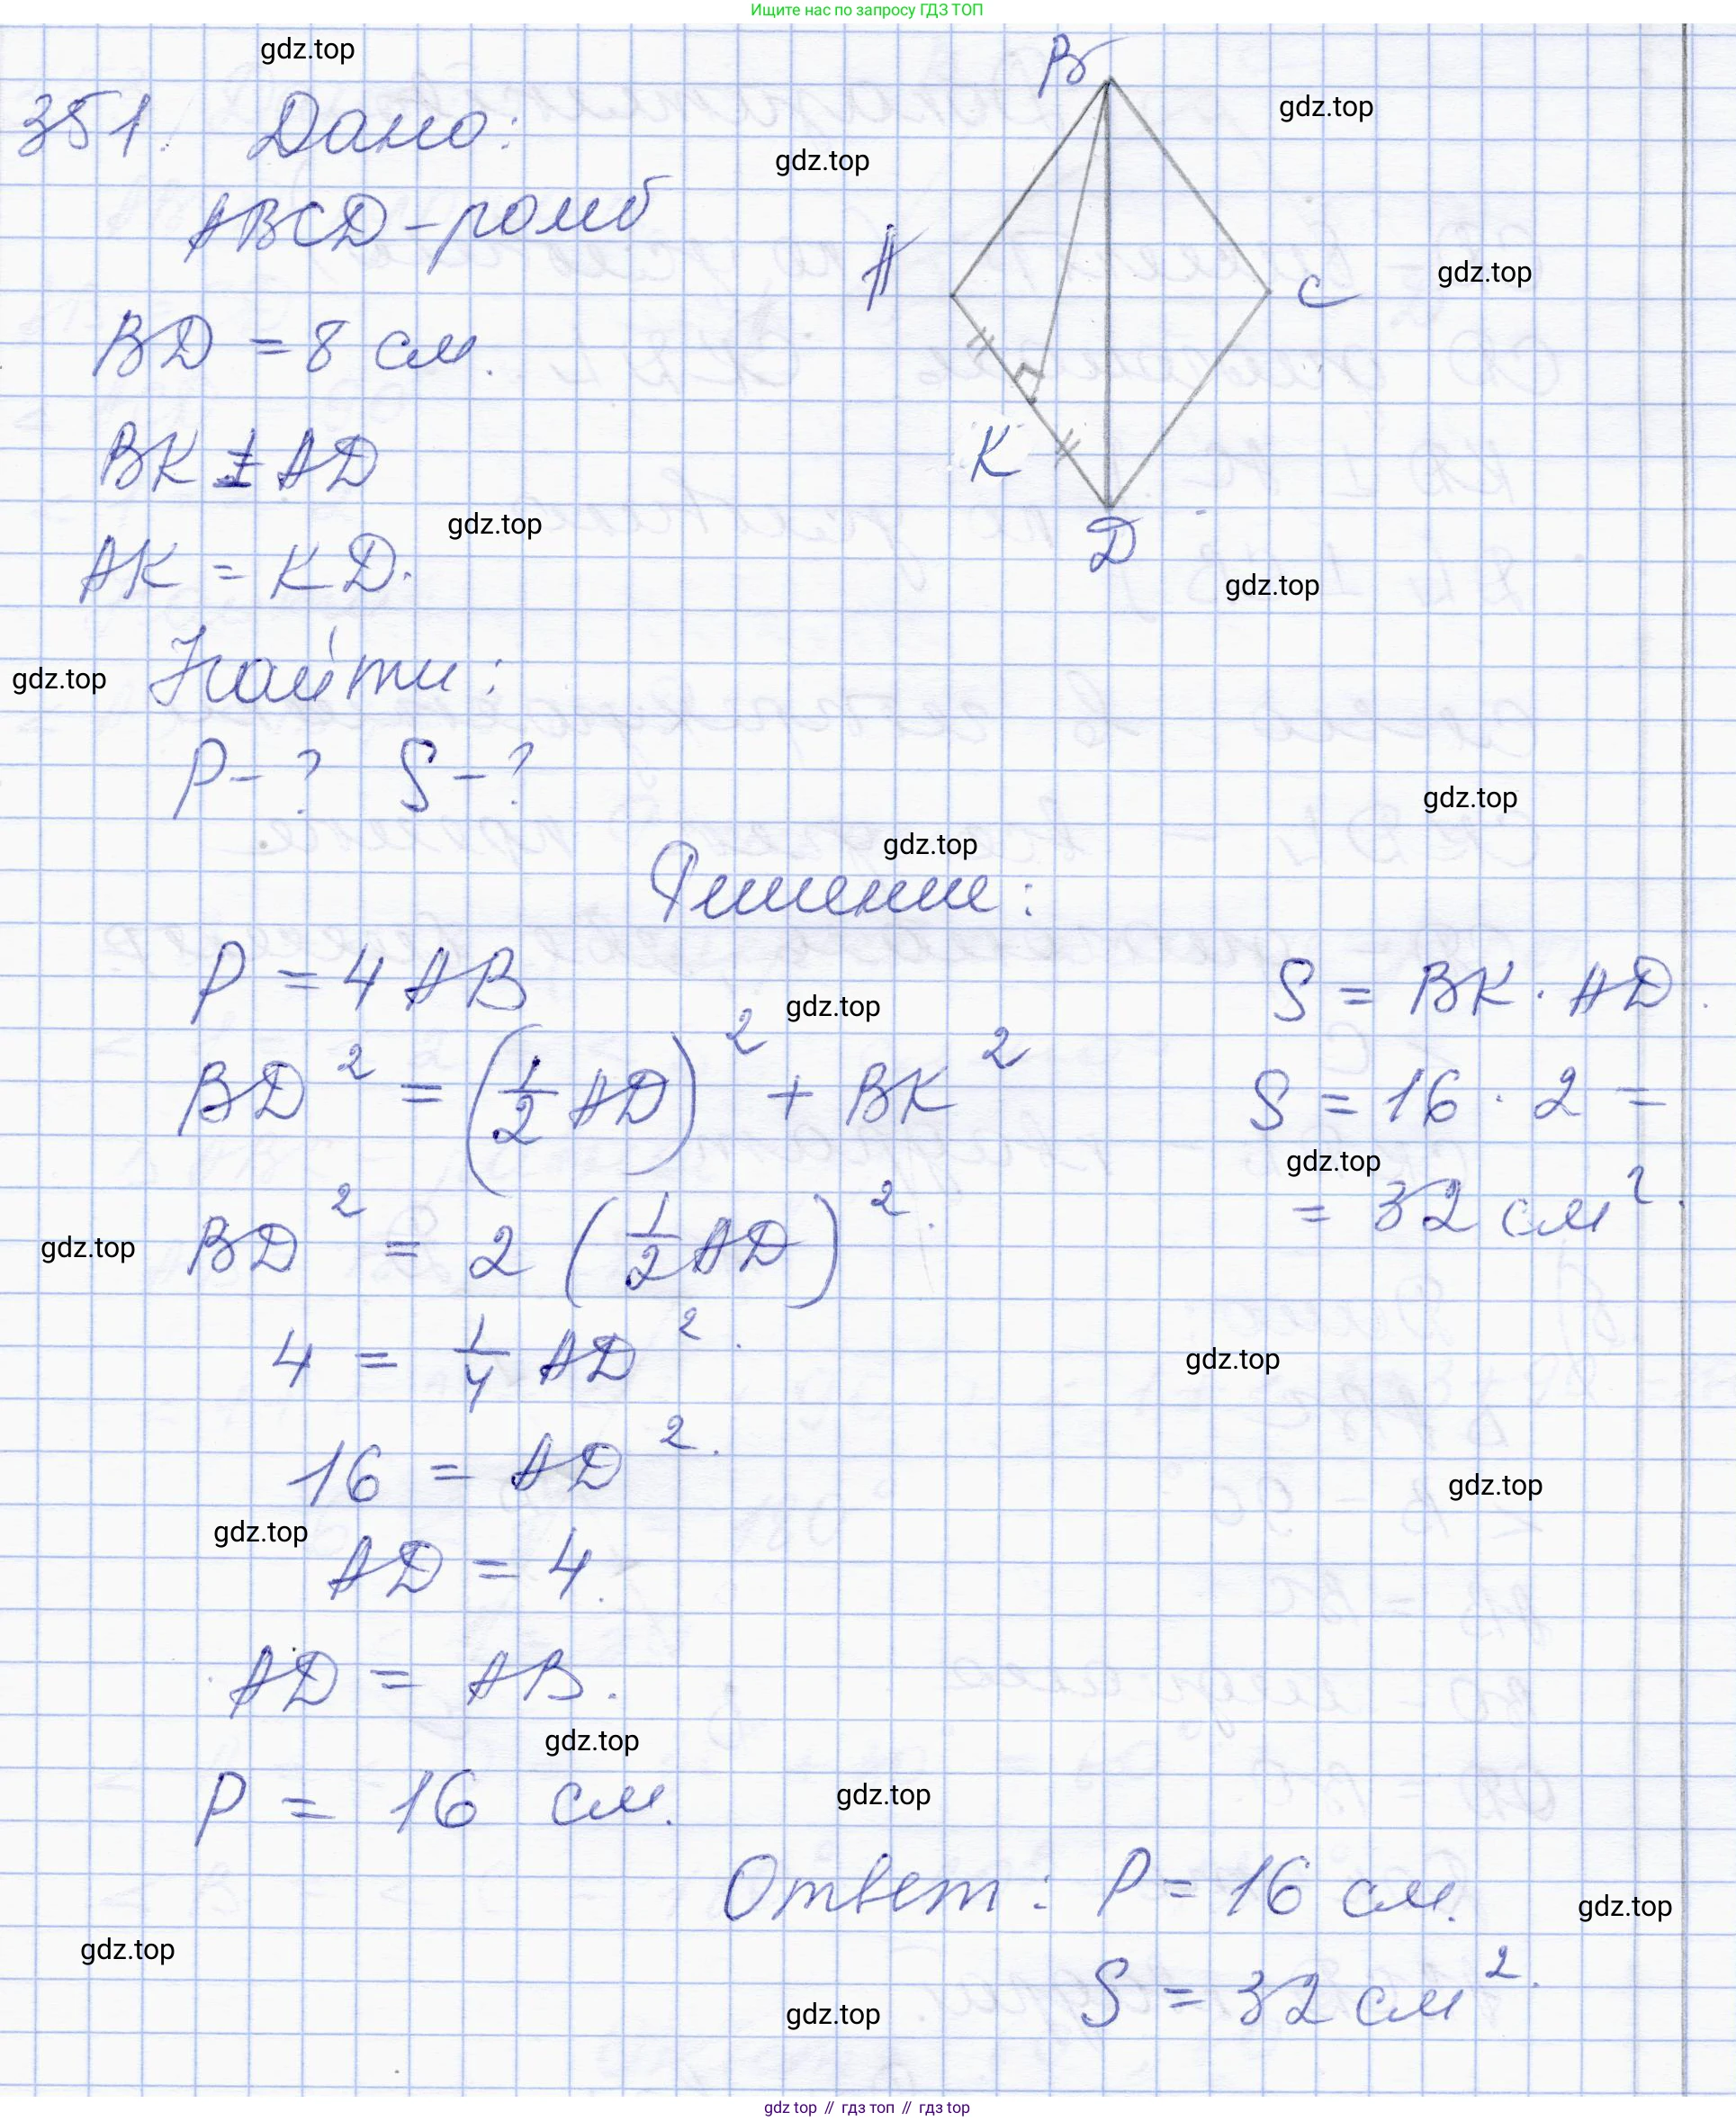 Ищите нас по запросу ГДЗ ТОП
gdz.top
351. Дано:
B
gdz.top
gdz.top
ABCD - ромб
A
C
gdz.top
BD = 8 см.
BK ⊥ AD
K
gdz.top
D
AK = KD.
gdz.top
Найти:
gdz.top
P - ? S - ?
gdz.top
gdz.top
Решение:
P = 4 AB
S = BK · AD.
gdz.top
BD² = (1/2 AD)² + BK²
S = 16 · 2 =
gdz.top
= 32 см².
BD² = 2 (1/2 AD)².
gdz.top
4 = 1/4 AD².
gdz.top
16 = AD².
gdz.top
gdz.top
AD = 4.
AD = AB.
gdz.top
P = 16 см.
gdz.top
Ответ: P = 16 см.
gdz.top
gdz.top
S = 32 см².
gdz.top
gdz top // гдз топ // гдз top